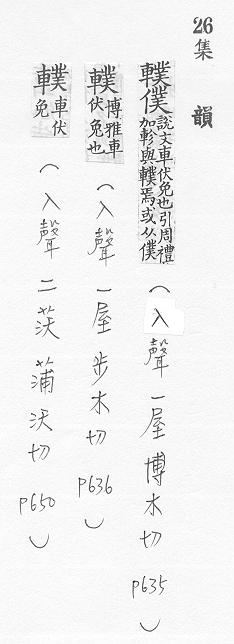 26 集韻
轐僕 說文車伏兔也引周禮加軫與轐焉或从僕 (入聲一屋博木切 p635)
轐 博雅車伏兔也 (入聲一屋步木切 p636)
轐 車伏兔 (入聲二沃蒲沃切 p650)